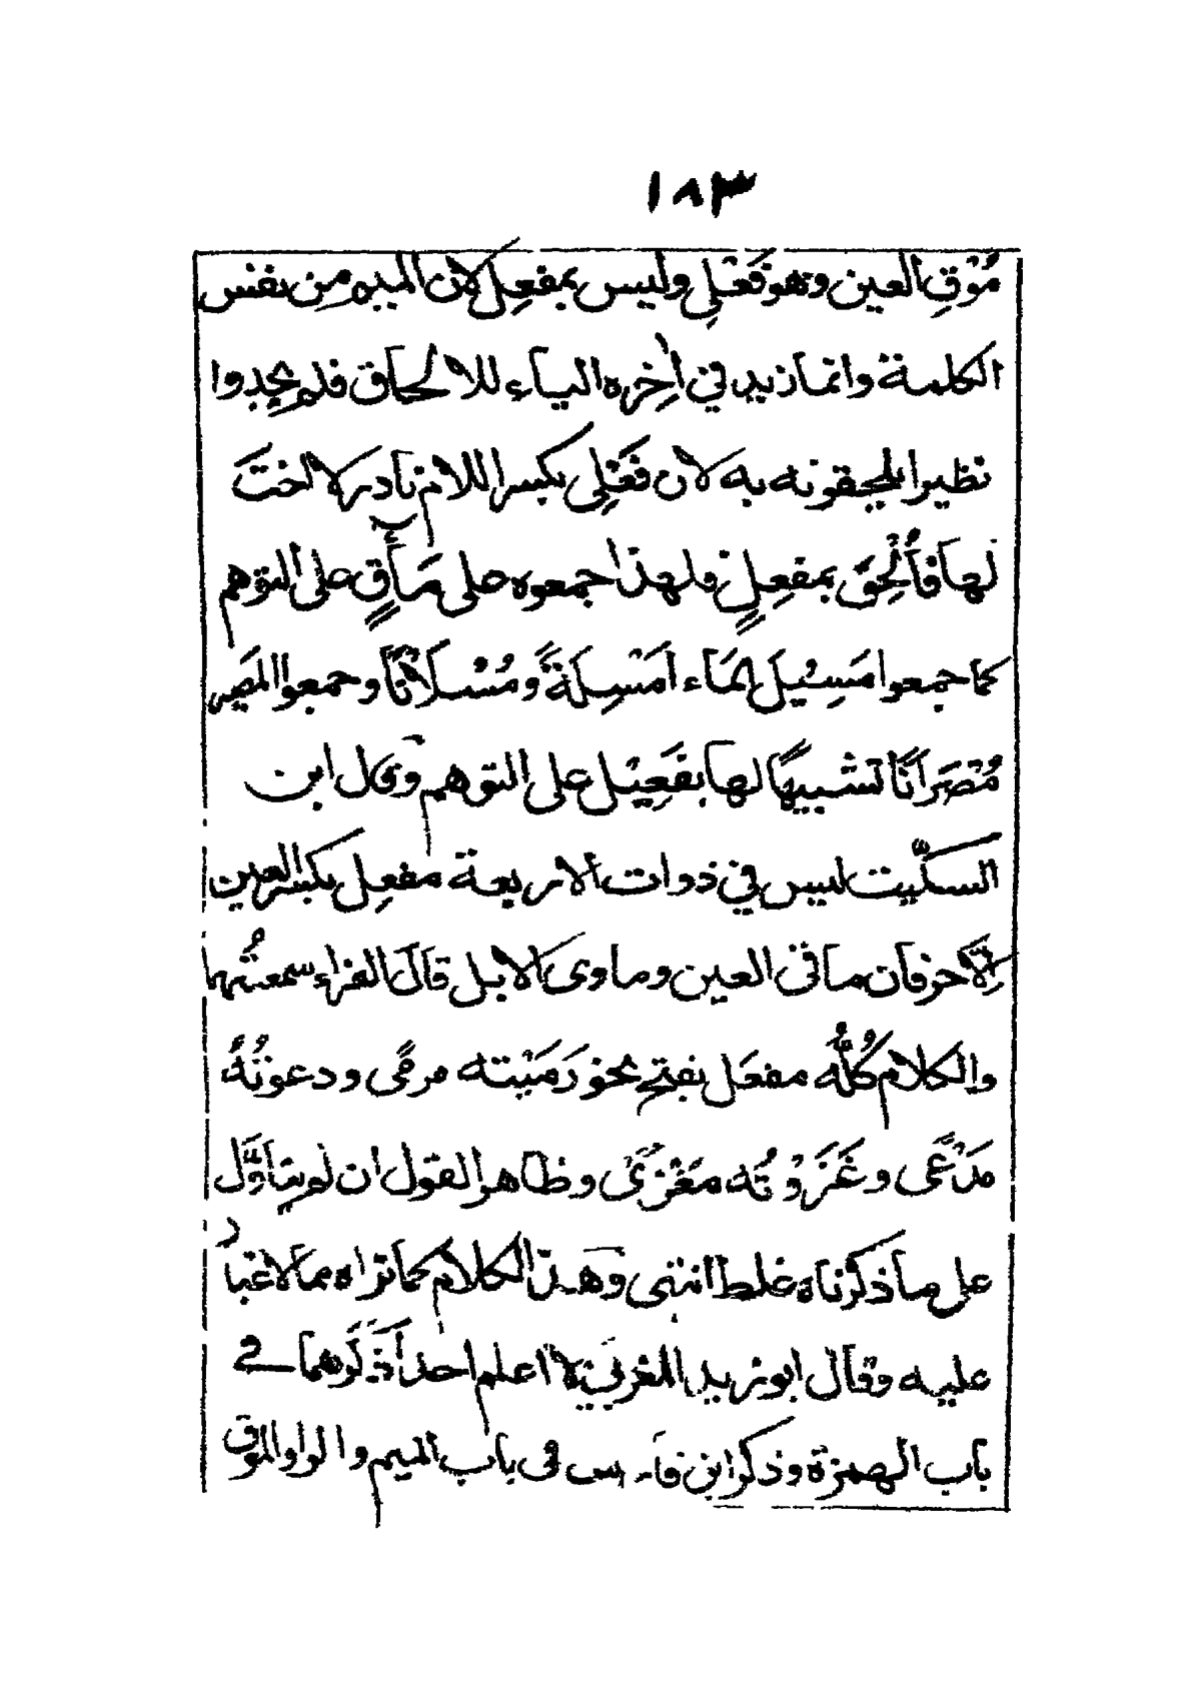 ١٨٣
مُؤْقِ العين وهو فَعْلِي وليس بمفعِل لان الميم من نفس
الكلمة وانما زيد في آخِره الياء للالحاق فلم يجدوا
نظيرا يلحقونه به لان فَعْلِي بكسر اللام نادر لا اخت
لها فأُلْحِقَ بمفعِلٍ ولهذا جمعوه على مَأقٍ على التوهم
كما جمعوا مَسِيْلَ المَاء امْسِلَةً ومُسْلَانًا وجمعوا المَصِير
مُصْرَانًا تشبيهًا لها بفَعِيْل على التوهم وقال ابن
السكّيت ليس في ذوات الاربعة مفعِل بكسر العين
اِلّا حرفان ماقى العين وماوى الابل قال الفراء سمعتُهما
والكلام كُلُّه مفعَل بفتح نحو رَمَيْته مرمًى ودعوتُهُ
مَدْعًى وغَزَوْتُه مَغْزًى وظاهر القول ان لم يتأوَّل
على ما ذكرناه غلط انتهى وهذا الكلام كما تراه مما لا غبار
عليه وقال ابو زيد المغربي لا اعلم احدا ذكرهما في
باب الهمزة وذكر ابن فارس في باب الميم والواو الموق